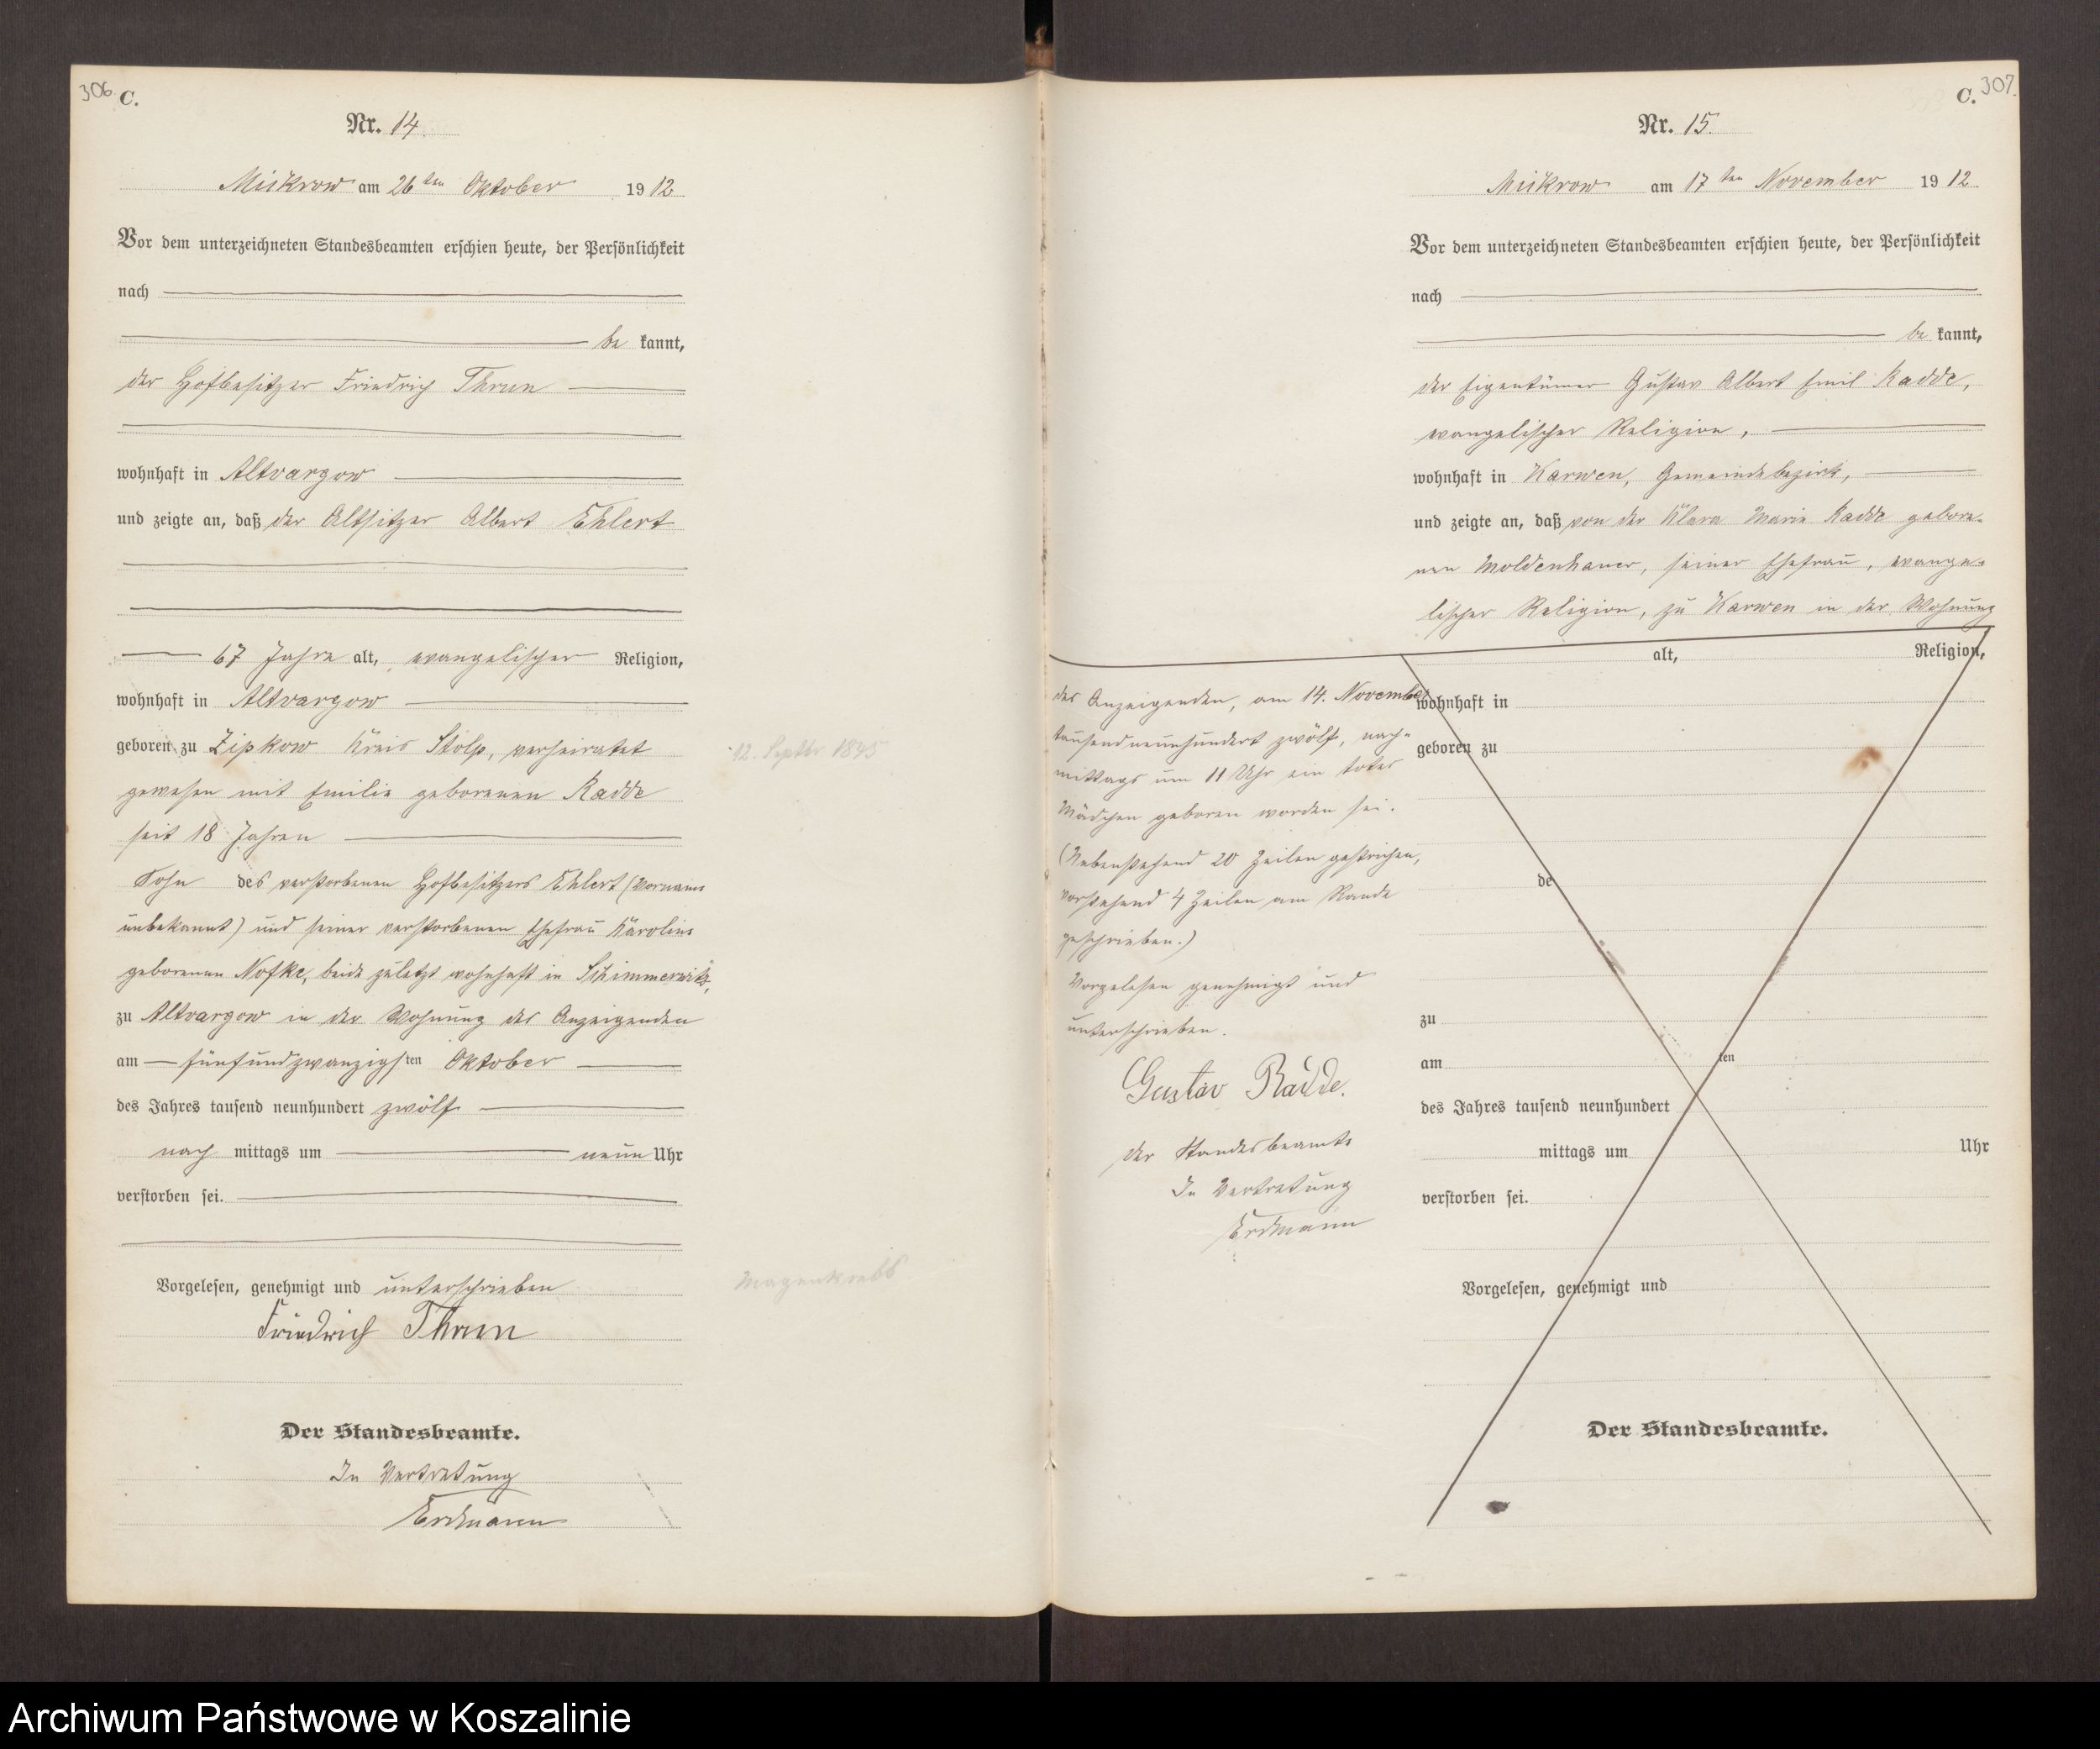 306. C.
Nr. 14.
Mickrow am 26ten Oktober 1912
Vor dem unterzeichneten Standesbeamten erschien heute, der Persönlichkeit
nach
be kannt,
der Hofbesitzer Friedrich Thrun
wohnhaft in Altvargow
und zeigte an, daß der Altsitzer Albert Ehlert
67 Jahre alt, evangelischer Religion,
wohnhaft in Altvargow
geboren zu Zipkow Kreis Stolp, verheiratet
12. Septbr 1845
gewesen mit Emilie geborenen Radde
seit 18 Jahren
Sohn des verstorbenen Hofbesitzers Ehlert (Vorname
unbekannt) und seiner verstorbenen Ehefrau Karoline
geborenen Nofke, beide zuletzt wohnhaft in Schimmerwitz,
zu Altvargow in der Wohnung des Anzeigenden
am fünfundzwanzigsten Oktober
des Jahres tausend neunhundert zwölf
nach mittags um neun Uhr
verstorben sei.
Magenkrebs
Vorgelesen, genehmigt und unterschrieben
Friedrich Thrun
Der Standesbeamte.
In Vertretung
Erdmann
C. 307.
Nr. 15.
Mickrow am 17ten November 1912
Vor dem unterzeichneten Standesbeamten erschien heute, der Persönlichkeit
nach
be kannt,
der Eigentümer Gustav Albert Emil Radde,
evangelischer Religion,
wohnhaft in Karwen, Gemeindebezirk,
und zeigte an, daß von der Klara Marie Radde gebore-
nen Moldenhauer, seiner Ehefrau, evange-
lischer Religion, zu Karwen in der Wohnung
des Anzeigenden, am 14. November
tausendneunhundert zwölf, nach-
mittags um 11 Uhr ein totes
Mädchen geboren worden sei.
(Nebenstehend 20 Zeilen gestrichen,
vorstehend 4 Zeilen am Rande
geschrieben.)
Vorgelesen genehmigt und
unterschrieben.
Gustav Radde.
Der Standesbeamte
In Vertretung
Erdmann
alt, Religion,
wohnhaft in
geboren zu
de
zu
am ten
des Jahres tausend neunhundert
mittags um Uhr
verstorben sei.
Vorgelesen, genehmigt und
Der Standesbeamte.
Archiwum Państwowe w Koszalinie